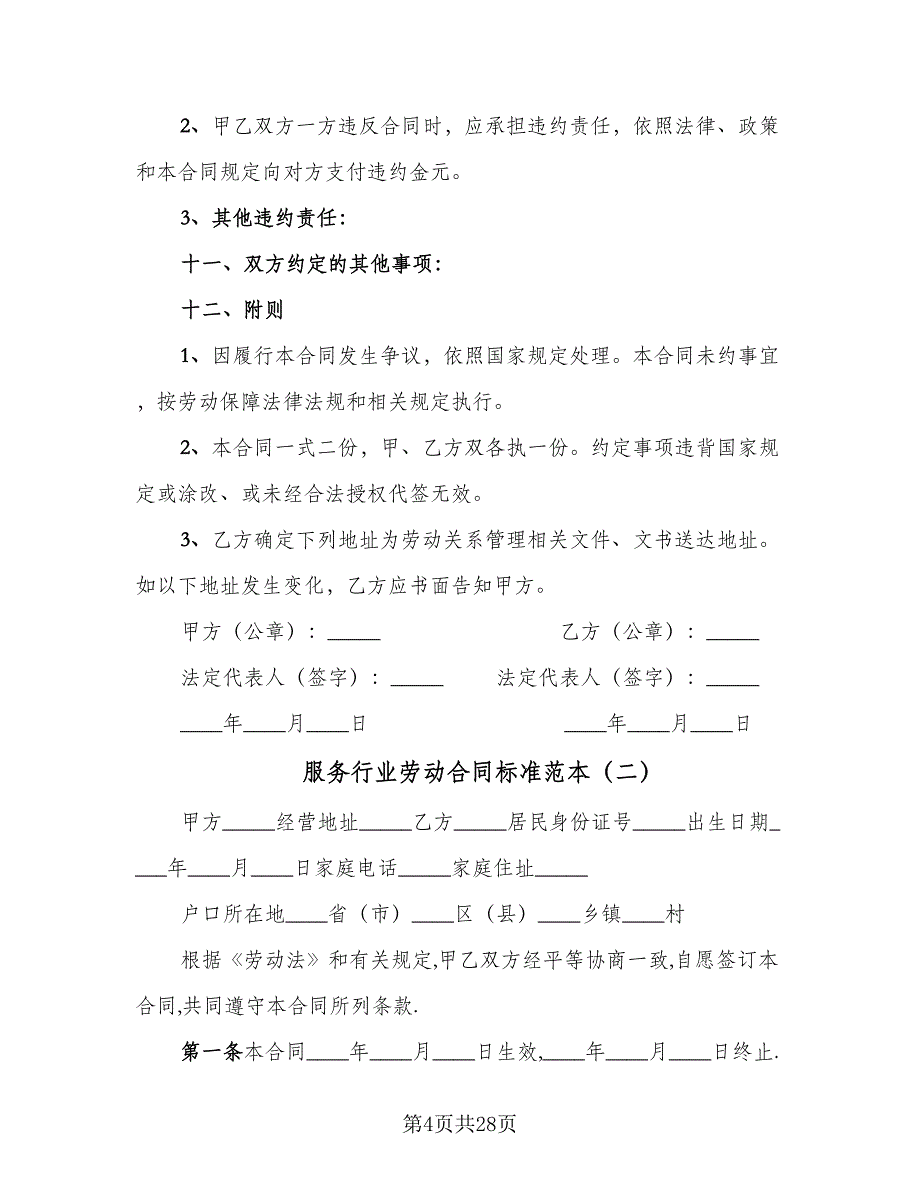 2、甲乙双方一方违反合同时，应承担违约责任，依照法律、政策
和本合同规定向对方支付违约金元。
3、其他违约责任：
十一、双方约定的其他事项：
十二、附则
1、因履行本合同发生争议，依照国家规定处理。本合同未约事宜
，按劳动保障法律法规和相关规定执行。
2、本合同一式二份，甲、乙方双各执一份。约定事项违背国家规
定或涂改、或未经合法授权代签无效。
3、乙方确定下列地址为劳动关系管理相关文件、文书送达地址。
如以下地址发生变化，乙方应书面告知甲方。
甲方（公章）：_____ 乙方（公章）：_____
法定代表人（签字）：_____ 法定代表人（签字）：_____
____年____月____日 ____年____月____日
服务行业劳动合同标准范本（二）
甲方_____经营地址_____乙方_____居民身份证号_____出生日期_
___年____月____日家庭电话_____家庭住址_____
户口所在地____省（市）____区（县）____乡镇____村
根据《劳动法》和有关规定,甲乙双方经平等协商一致,自愿签订本
合同,共同遵守本合同所列条款.
第一条本合同____年____月____日生效,____年____月____日终止.
第4页共28页